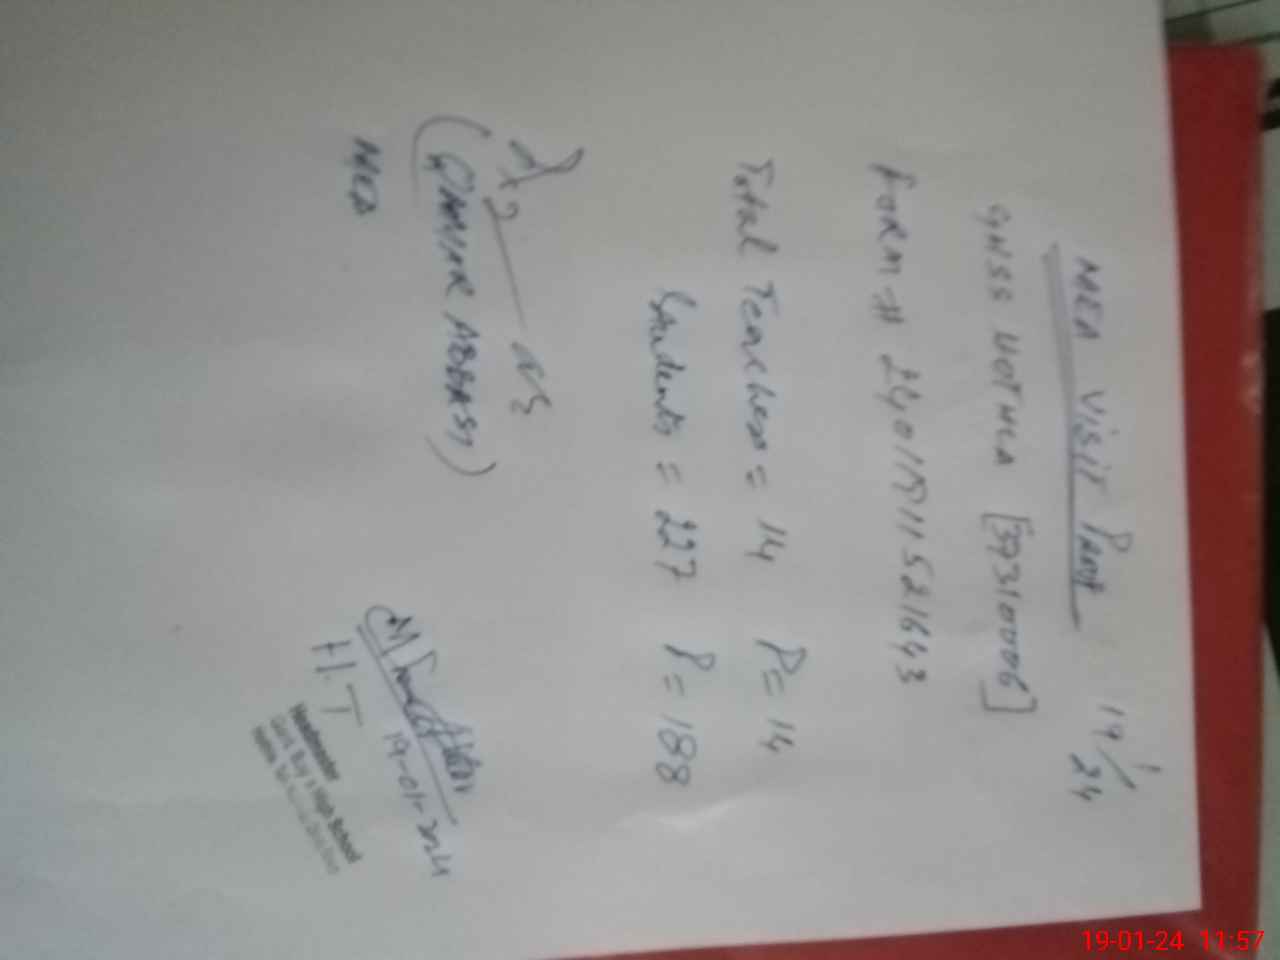 MEA Visit Proof 19/1/24
GHSS HOTHLA [37310006]
FORM # 24011911521643
Total Teachers = 14 P = 14
Students = 227 P = 188
(QAMAR ABBAS)
MEA
19-01-2024
H.T
Headmaster
Govt. Boy's High School
19-01-24 11:57